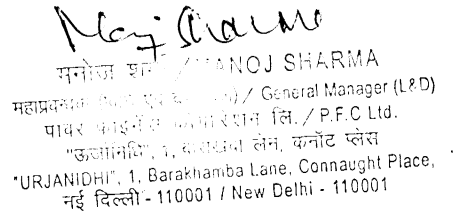 Manoj Sharma
मनोज शर्मा / MANOJ SHARMA
महाप्रबन्धक / General Manager (L&D)
पावर फाइनेंस कॉर्पोरेशन लि. / P.F.C Ltd.
"ऊर्जानिधि", 1, बाराखंबा लेन, कनॉट प्लेस
"URJANIDHI", 1, Barakhamba Lane, Connaught Place,
नई दिल्ली - 110001 / New Delhi - 110001